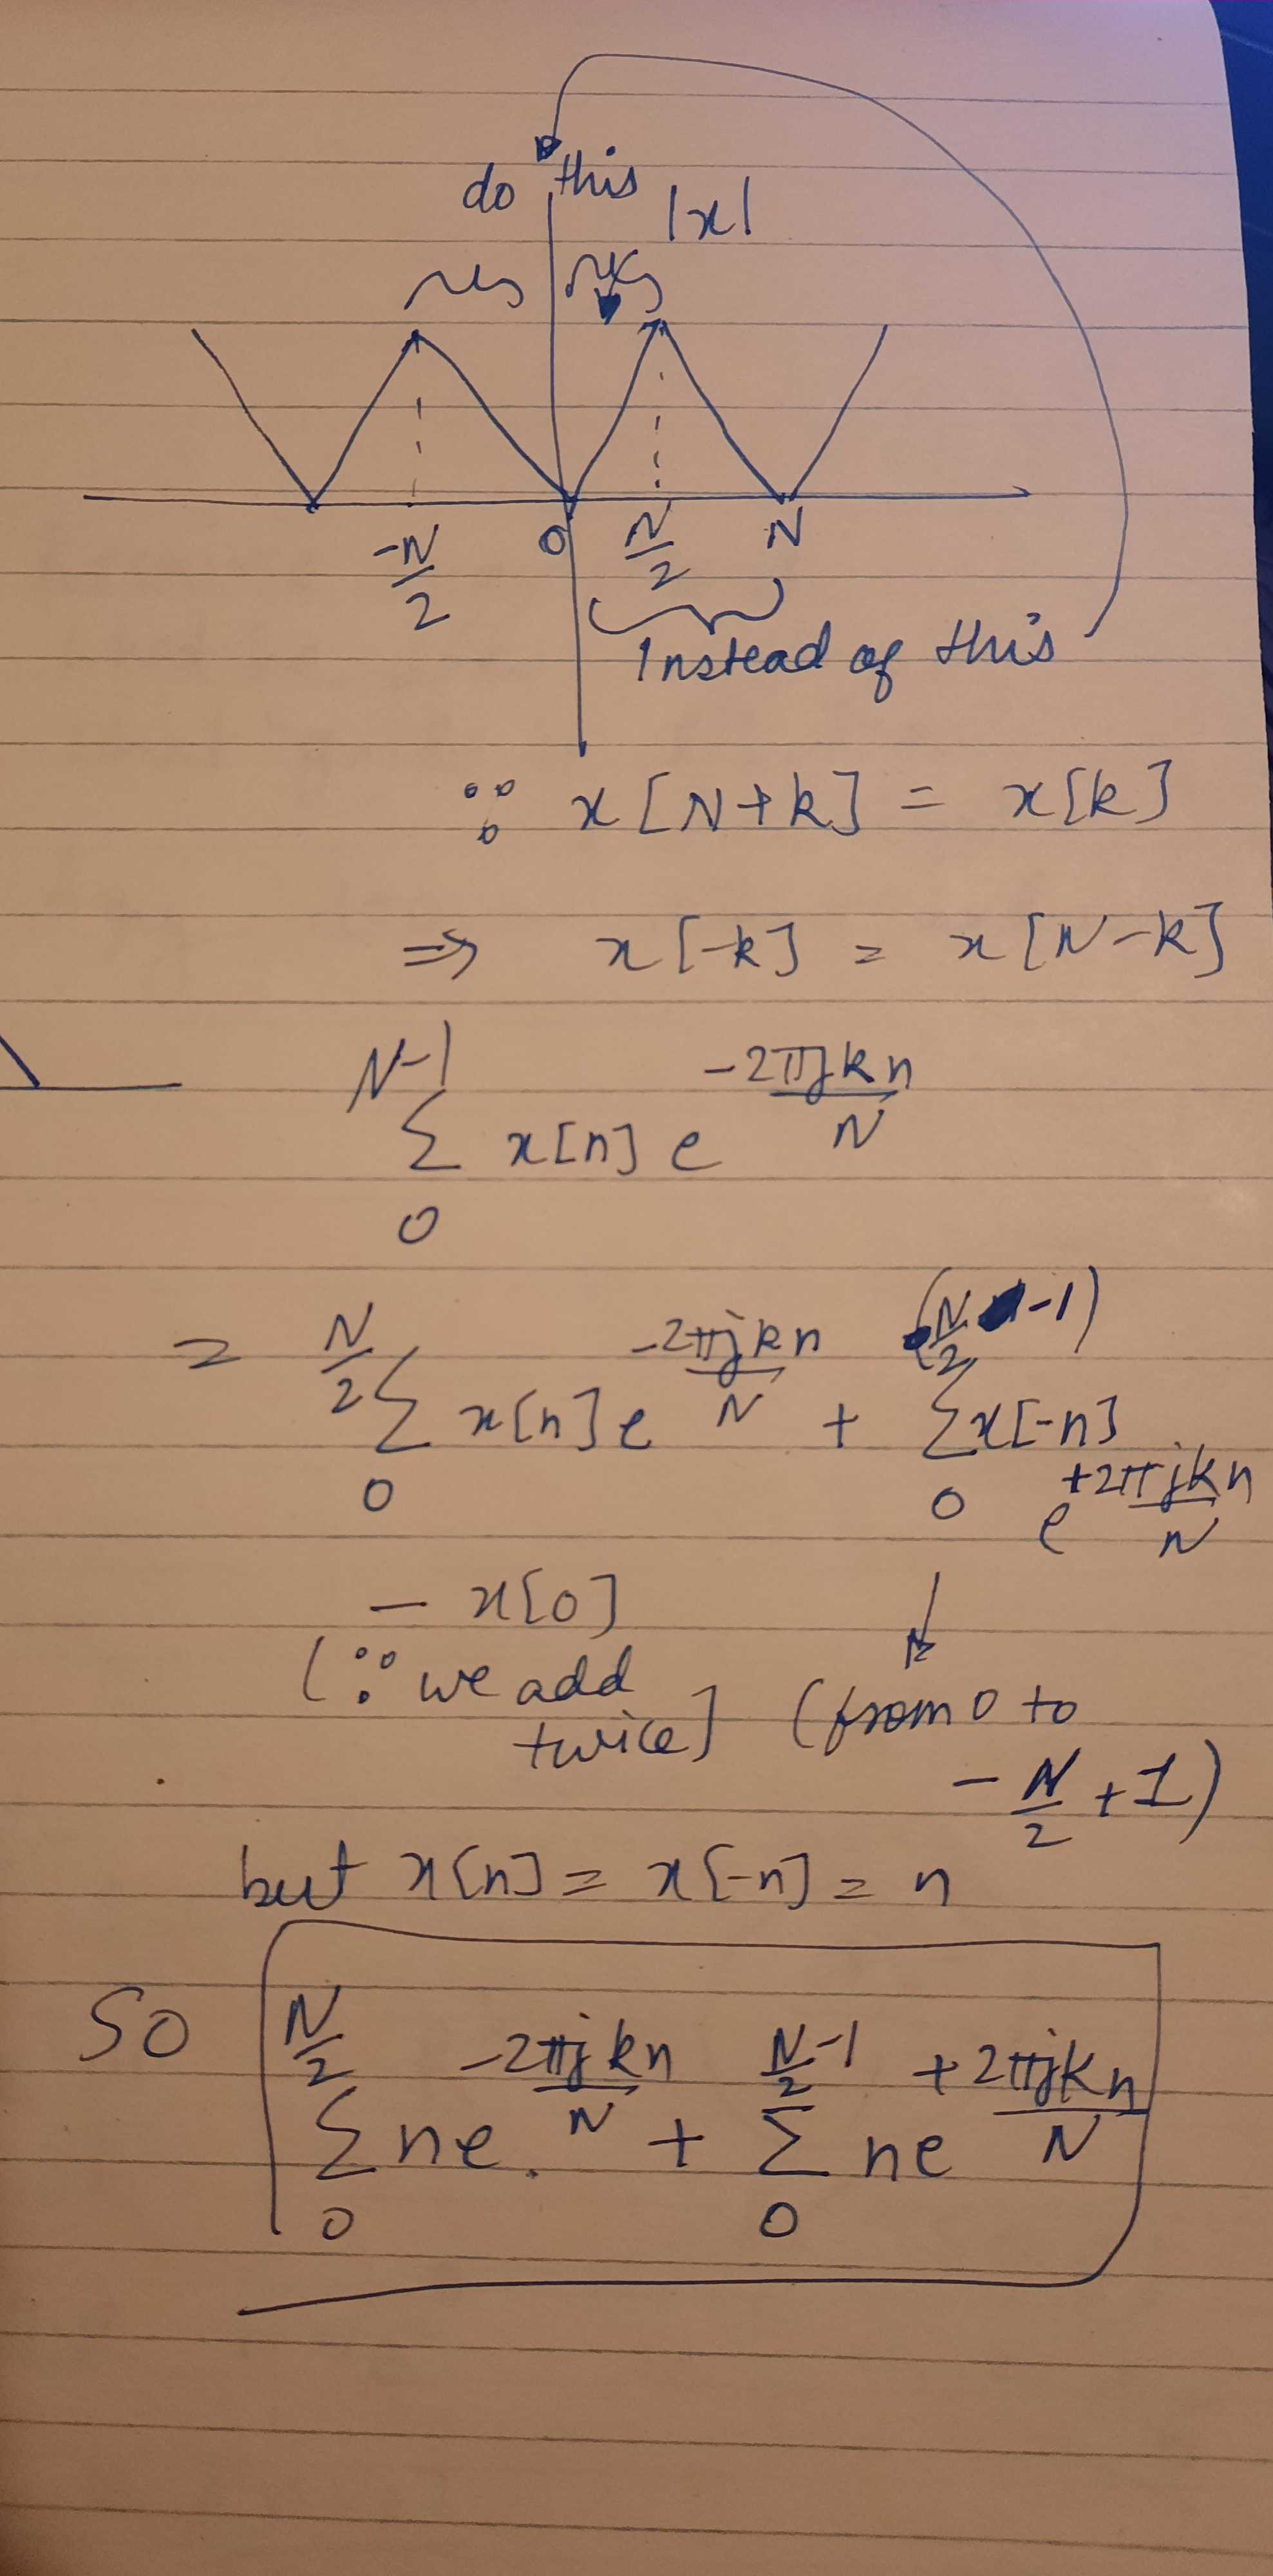 do this
|x|
-N/2 0 N/2 N
Instead of this
∵ x[N+k] = x[k]
⇒ x[-k] = x[N-k]
N-1 Σ 0 x[n] e -2πjkn/N
= N/2 Σ 0 x[n] e -2πjkn/N + (N/2 -1) Σ 0 x[-n] e +2πjkn/N
- x[0]
(∵ we add twice] (from 0 to
-N/2 + 1)
but x[n] = x[-n] = n
So N/2 Σ 0 ne -2πjkn/N + N/2 -1 Σ 0 ne +2πjkn/N